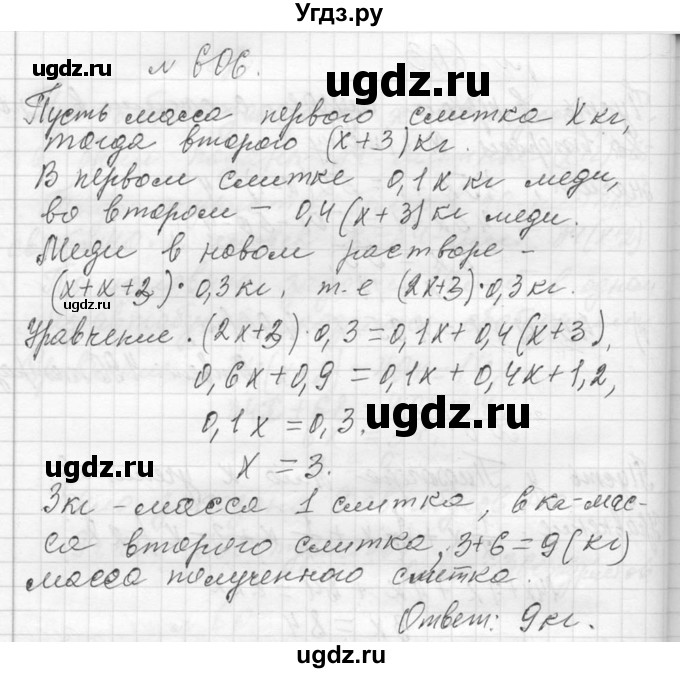 Угдз.ру
№ 606.
ugdz.ru
ugdz.ru
Пусть масса первого слитка X кг,
тогда второго (x+3) кг.
В первом слитке 0,1x кг меди,
во втором – 0,4(x+3) кг меди.
Меди в новом растворе –
ugdz.ru
(x+x+3)·0,3кг, т.е (2x+3)·0,3кг.
Уравнение. (2x+3)·0,3=0,1x+0,4(x+3),
0,6x+0,9=0,1x+0,4x+1,2,
0,1x=0,3.
ugdz.ru
ugdz.ru
x=3.
3кг – масса 1 слитка, 6 кг – мас-
са второго слитка, 3+6=9(кг)
масса полученного слитка.
Ответ: 9кг.
ugdz.ru
ugdz.ru